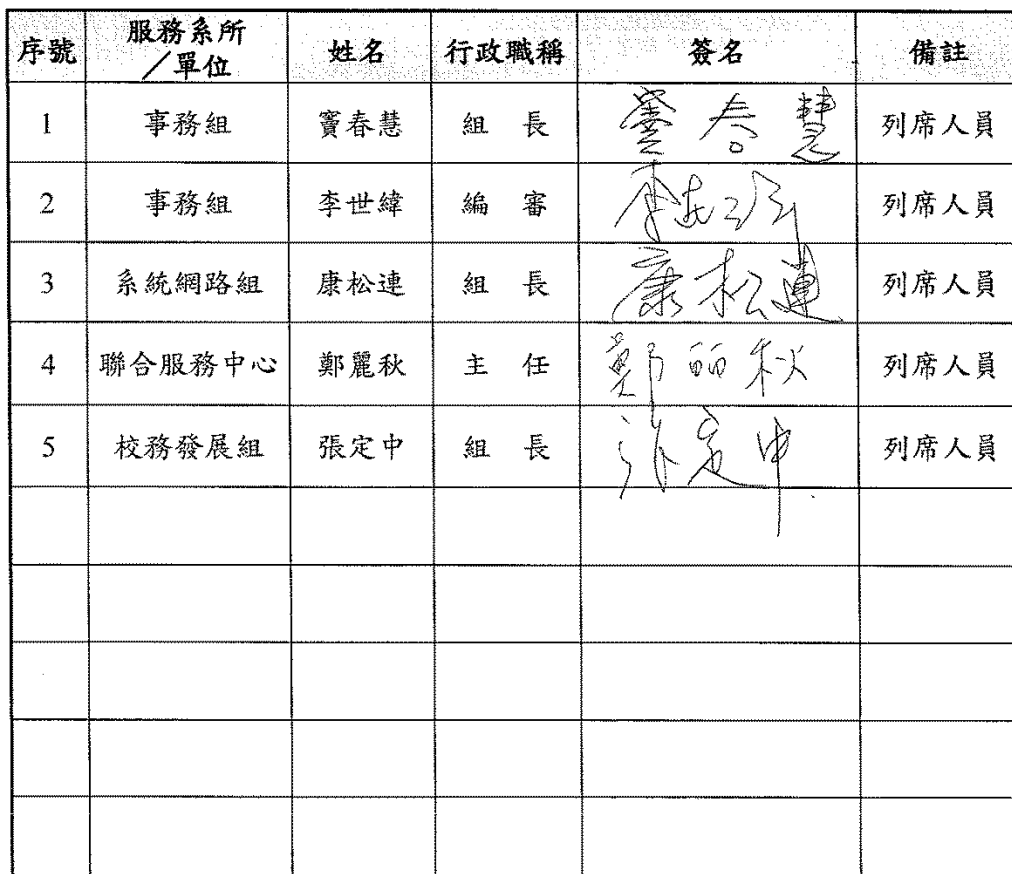 序號 服務系所／單位 姓名 行政職稱 簽名 備註
1 事務組 竇春慧 組 長 竇春慧 列席人員
2 事務組 李世緯 編 審 列席人員
3 系統網路組 康松連 組 長 康松連 列席人員
4 聯合服務中心 鄭麗秋 主 任 鄭丽秋 列席人員
5 校務發展組 張定中 組 長 张定中 列席人員